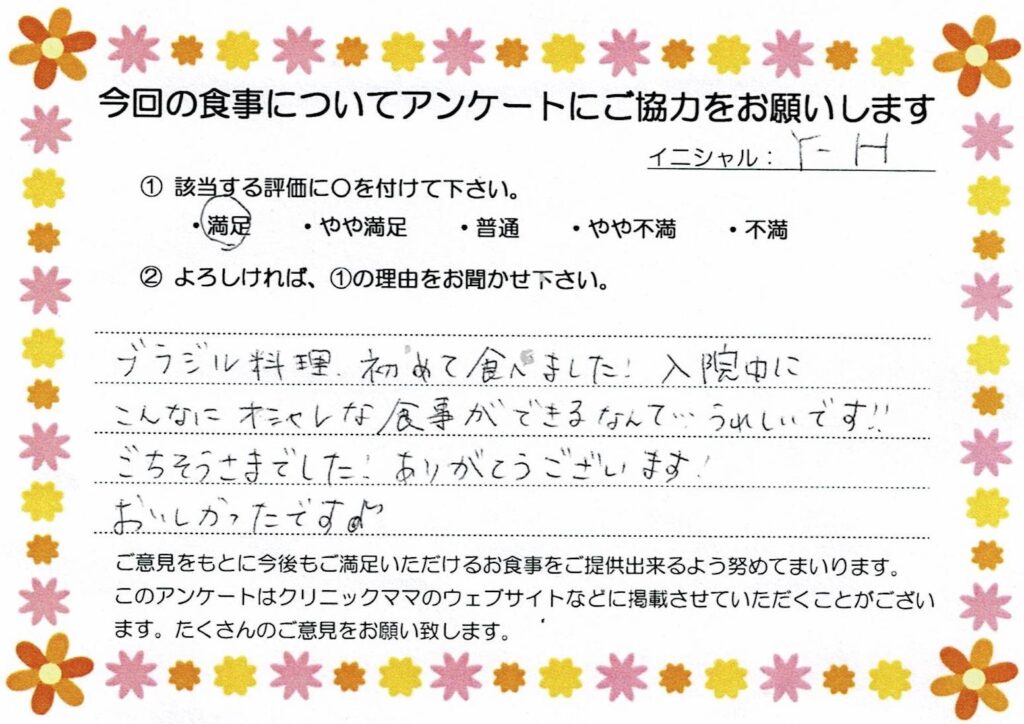 今回の食事についてアンケートにご協力をお願いします
イニシャル： Y-H
① 該当する評価に〇を付けて下さい。
・満足 ・やや満足 ・普通 ・やや不満 ・不満
② よろしければ、①の理由をお聞かせ下さい。
ブラジル料理、初めて食べました！ 入院中に
こんなに オシャレな食事ができるなんて… うれしいです!!
ごちそうさまでした！ ありがとうございます！
おいしかったです♪
ご意見をもとに今後もご満足いただけるお食事をご提供出来るよう努めてまいります。
このアンケートはクリニックママのウェブサイトなどに掲載させていただくことがござい
ます。たくさんのご意見をお願い致します。